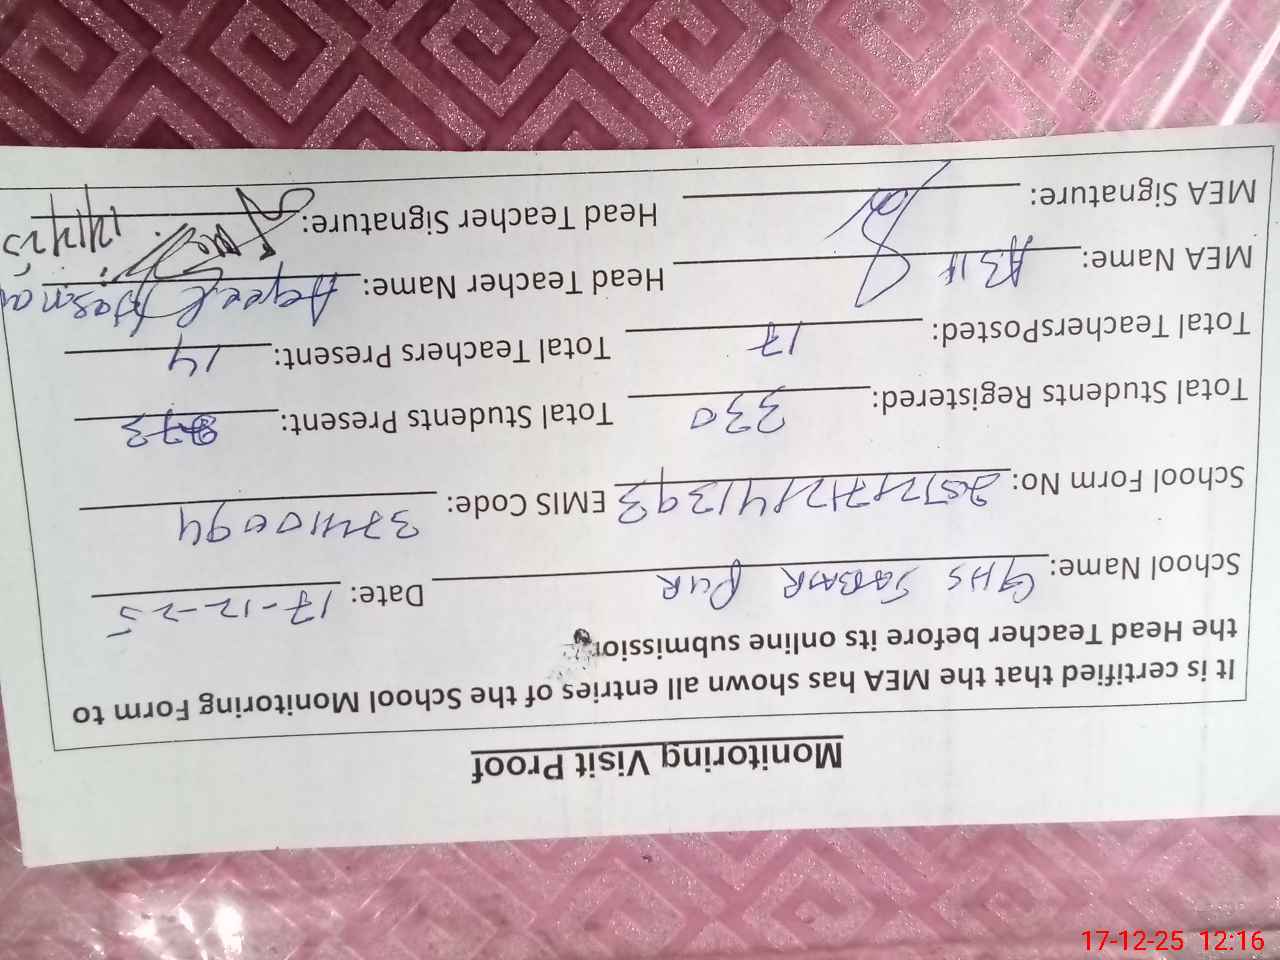 Monitoring Visit Proof
It is certified that the MEA has shown all entries of the School Monitoring Form to
the Head Teacher before its online submission
School Name: GHS SABAR PUR Date: 17-12-25
School Form No: EMIS Code: 37410094
Total Students Registered: 330 Total Students Present: 273
Total TeachersPosted: 17 Total Teachers Present: 14
MEA Name: Head Teacher Name: Aqeel
MEA Signature: Head Teacher Signature:
17-12-25 12:16